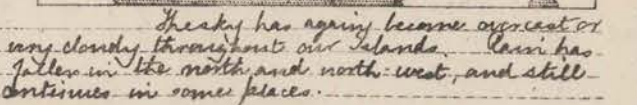 The sky has again become overcast or
very cloudy throughout our Islands. Rain has
fallen in the north and north-west, and still
continues in some places.